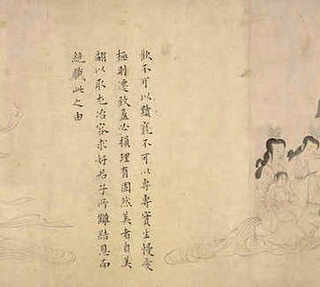 歡不可以黷寵不可以專專實生慢愛
極則遷致盈必損理有固然美者自美
翩以取尤冶容求好君子所讎結恩而
絕職此之由